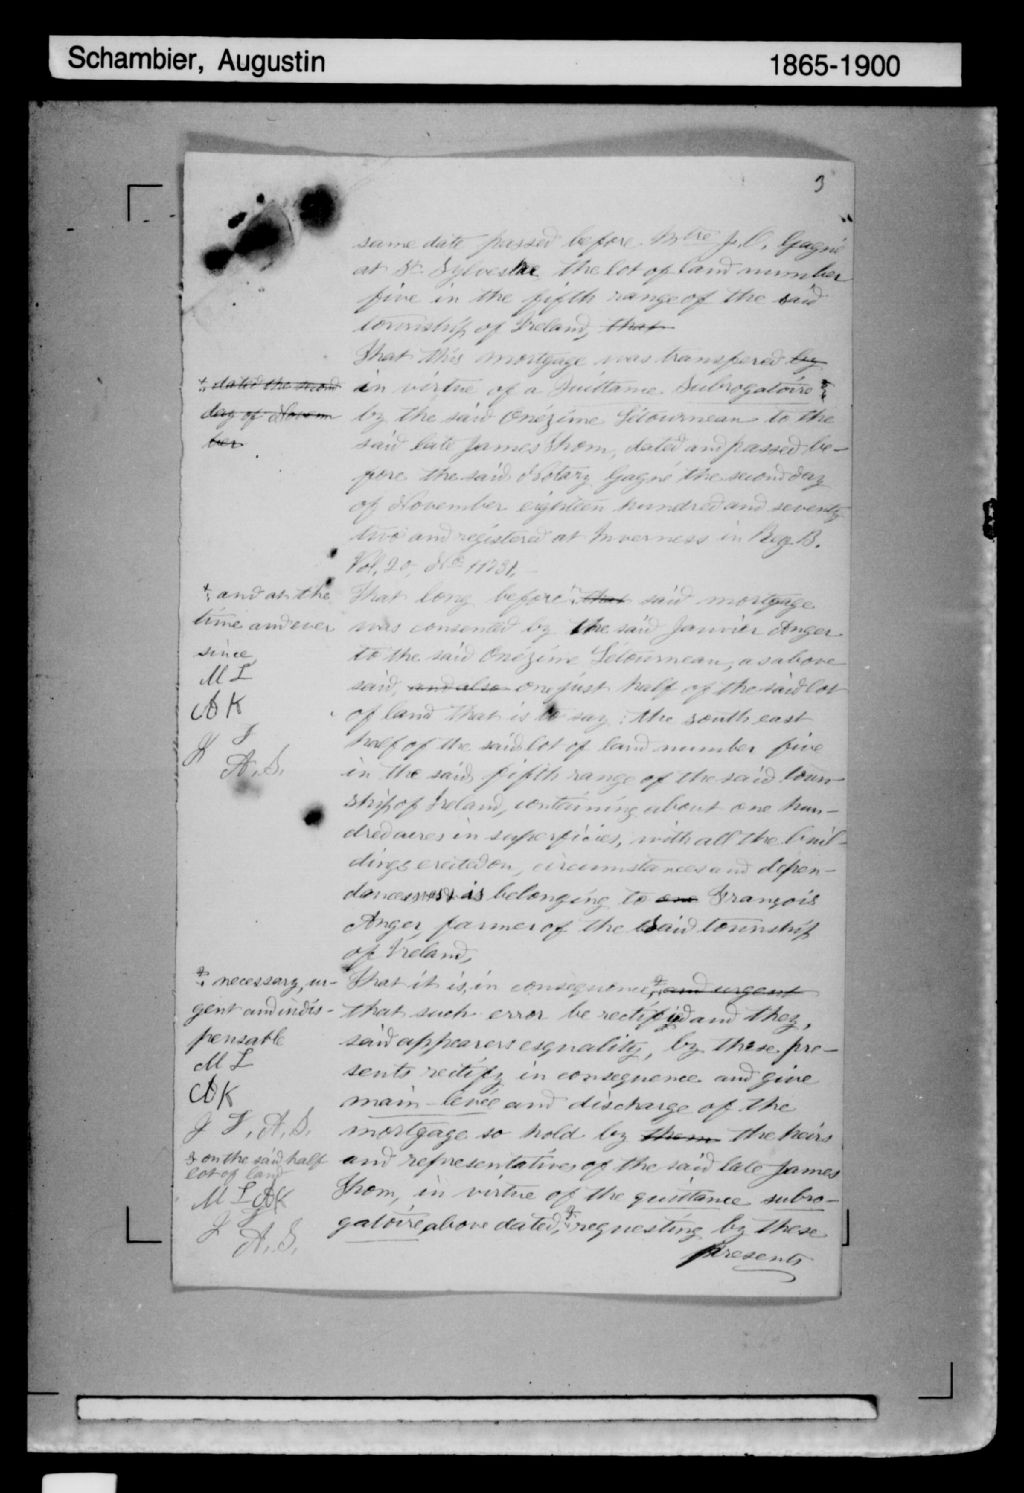 Schambier, Augustin
1865-1900
3
same date passed before Mtre J. O. Gagné
at St Sylvestre the lot of land number
five in the fifth range of the said
township of Ireland, that
That this mortgage was transfered by
in virtue of a Quittance Subrogatoire
by the said Onézime Létourneau to the
said late James Throm, dated and passed be-
fore the said Notary Gagné the second day
of November eighteen hundred and seventy
two and registered at Inverness in Reg. B.
Vol. 20, No
That long before that said mortgage
was consented by the said Janvier Anger
to the said Onézime Létourneau, as above
said, and also one just half of the said lot
of land that is to say: the south east
half of the said lot of land number five
in the said fifth range of the said town
ship of Ireland, containing about one hun-
dred acres in superficies, with all the buil-
dings erected on, circumstances and depen-
dances is belonging to one François
Anger, farmer of the said township
of Ireland,
That it is, in consequence, and urgent
that such error be rectifyd and they,
said appearers esquality, by these pre-
sents rectify in consequence and give
main-levée and discharge of the
mortgage so hold by them the heirs
and representatives of the said late James
Throm, in virtue of the quittance subro-
gatoire above dated, requesting by these
presents
dated the second
day of Novem
ber
and at the
time and ever
since
M L
A K
J T
A. S.
necessary, ur-
gent and indis-
pensable
M L
A K
J T, A. S.
& on the said half
lot of land
M L A K
J T
A. S.